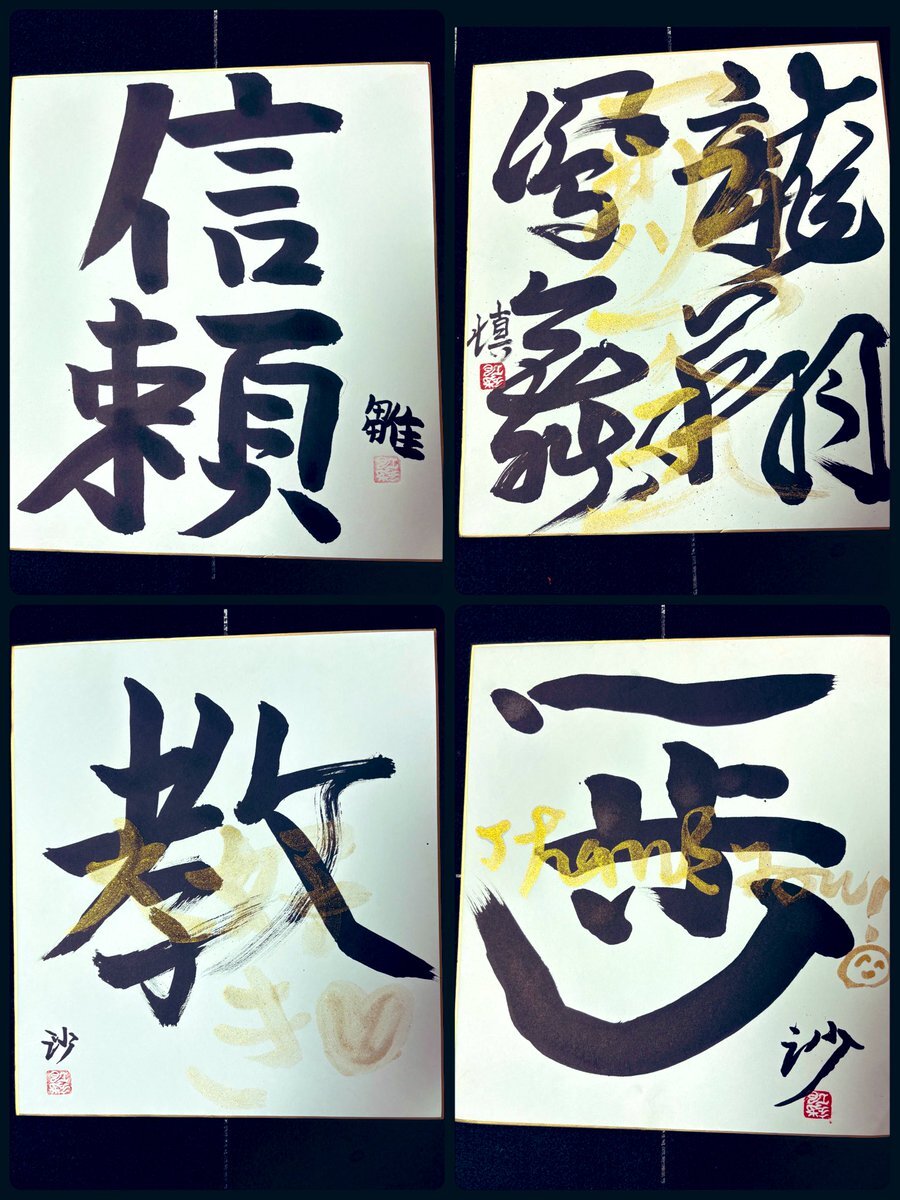 信頼
雛
龍翔
鳳舞
慎
教
大好き
沙
一歩
Thank you!
沙